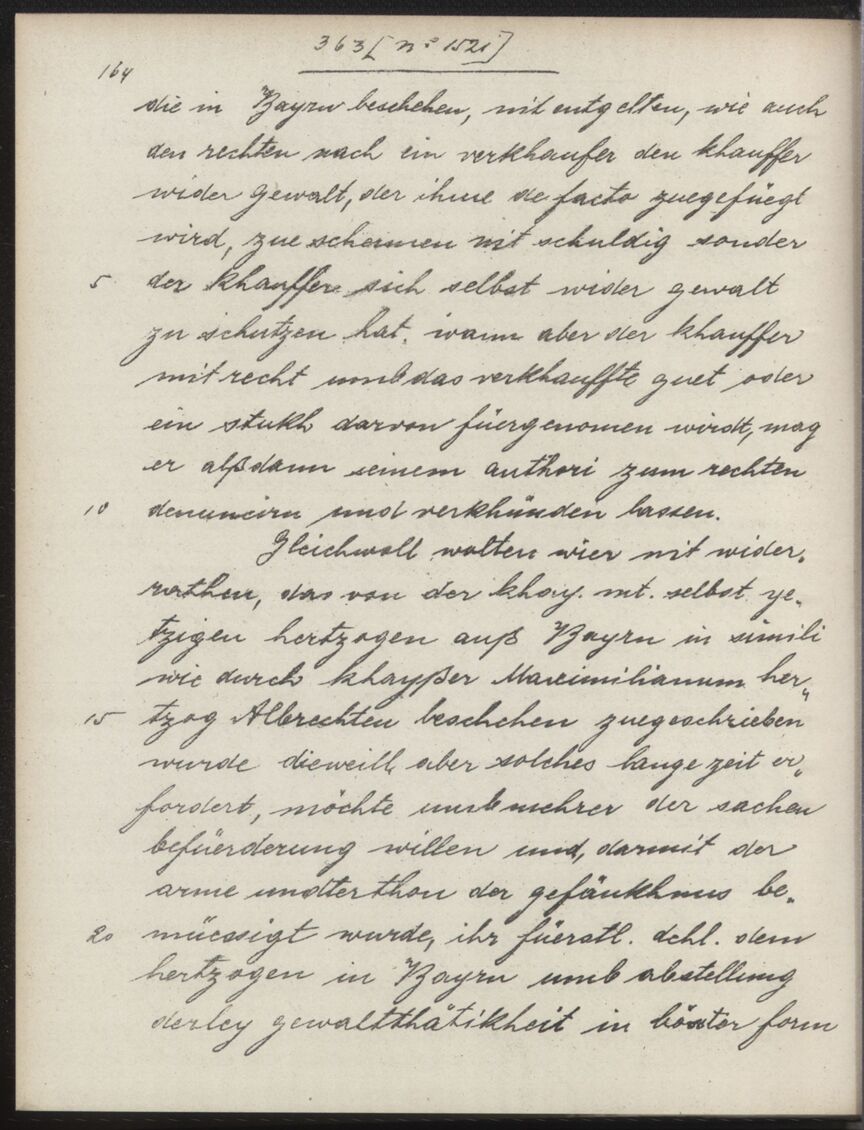 363 [nº 1521]
164
die in Bayrn beschehen, nit entgelten, wie auch
den rechten nach ein verkhaufer den khauffer
wider gewalt, der ihme de facto zuegefüegt
wird, zue schermen nit schuldig sonder
5 der khauffer sich selbst wider gewalt
zu schutzen hat. wann aber der khauffer
mit recht umb das verkhauffte guet oder
ein stukh darvon füergenomen wirdt, mag
er alßdann seinem authori zum rechten
10 denuncirn und verkhünden lassen.
Gleichwoll wolten wier nit wider-
rathen, das von der khay. mt. selbst ye-
tzigen hertzogen auß Bayrn in simili
wie durch khayßer Maximilianum her-
15 tzog Albrechten beschehen zuegeschrieben
wurde dieweill aber solches lange zeit er-
fordert, möchte umb mehrer der sachen
befüerderung willen und, darmit der
arme undterthon der gefänkhnus be-
20 müessigt wurde, ihr füerstl. dchl. dem
hertzogen in Bayrn umb abstellung
derley gewaltthätikheit in böster form